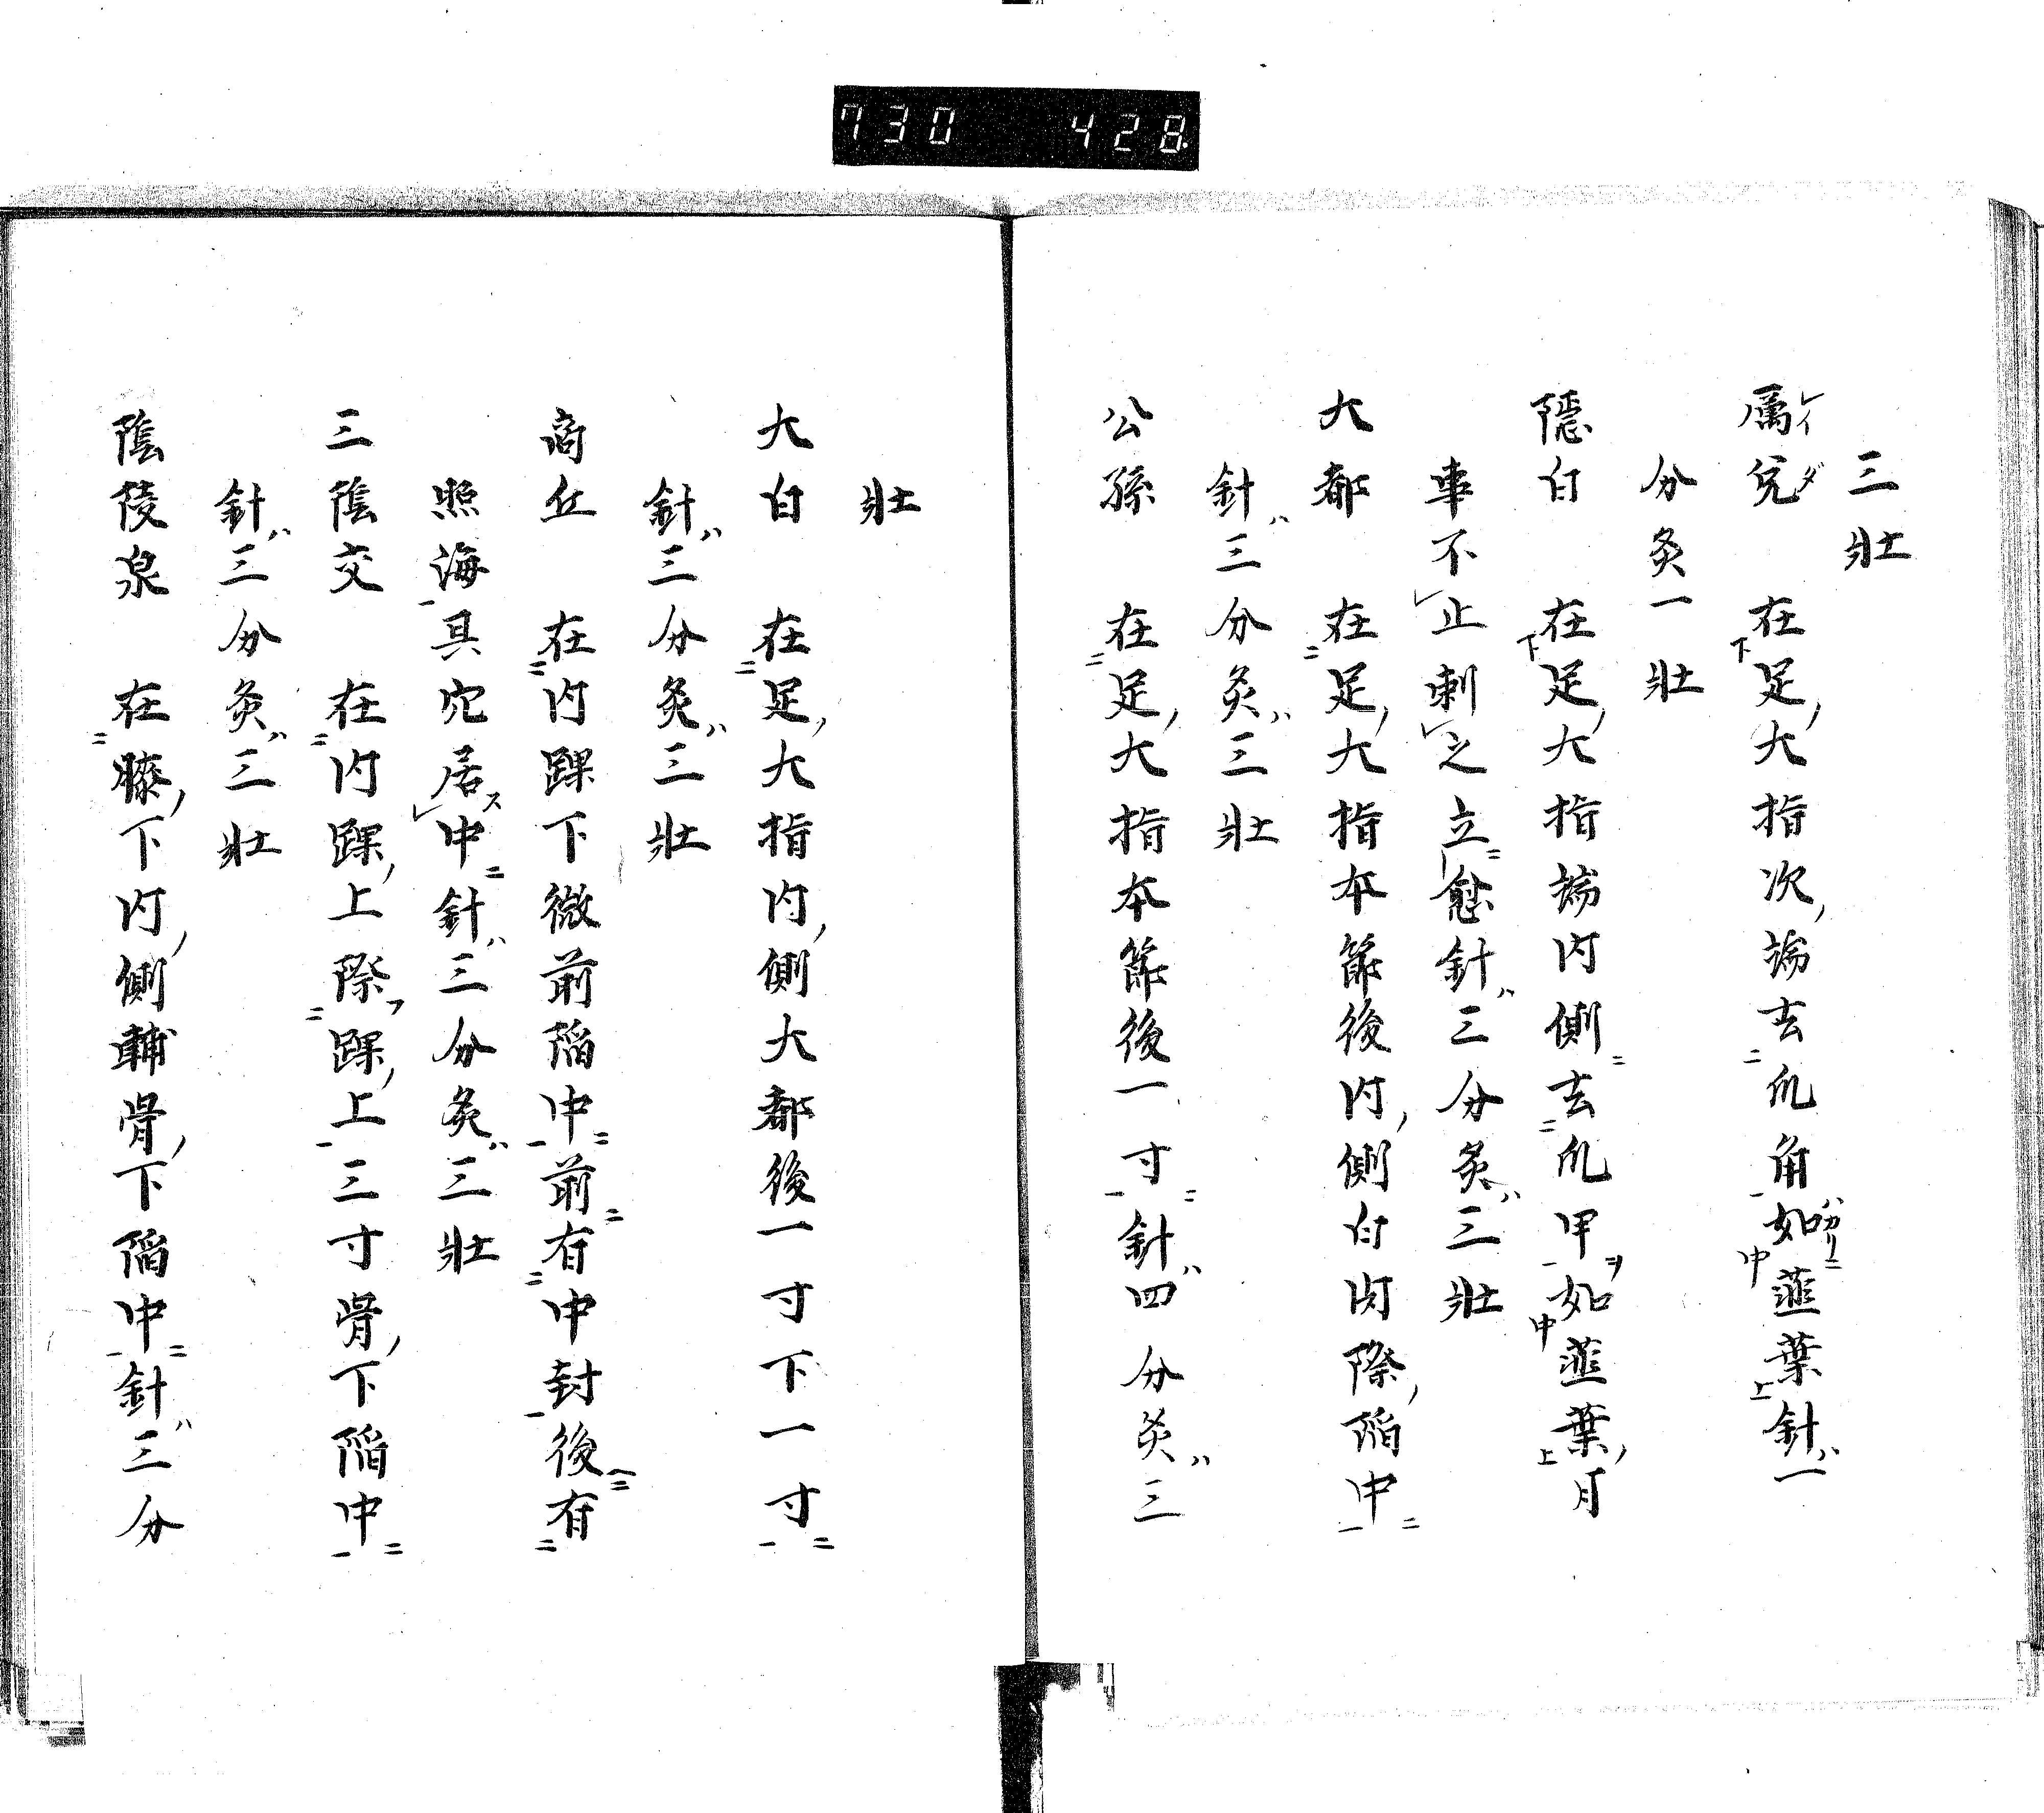 730 428
三壯
厲兌 在足大指次端去爪角如韮葉針一
分灸一壯
隠白 在足大指端内側去爪甲如韮葉月
事不止刺之立愈針三分灸三壯
大都 在足大指本節後内側白肉際陥中
針三分灸三壯
公孫 在足大指本節後一寸針四分灸三
壯
大白 在足大指内側大都後一寸下一寸
針三分灸三壯
商丘 在内踝下微前陥中前有中封後有
照海其穴居中針三分灸三壯
三陰交 在内踝上際踝上三寸骨下陥中
針三分灸三壯
陰陵泉 在膝下内側輔骨下陥中針三分